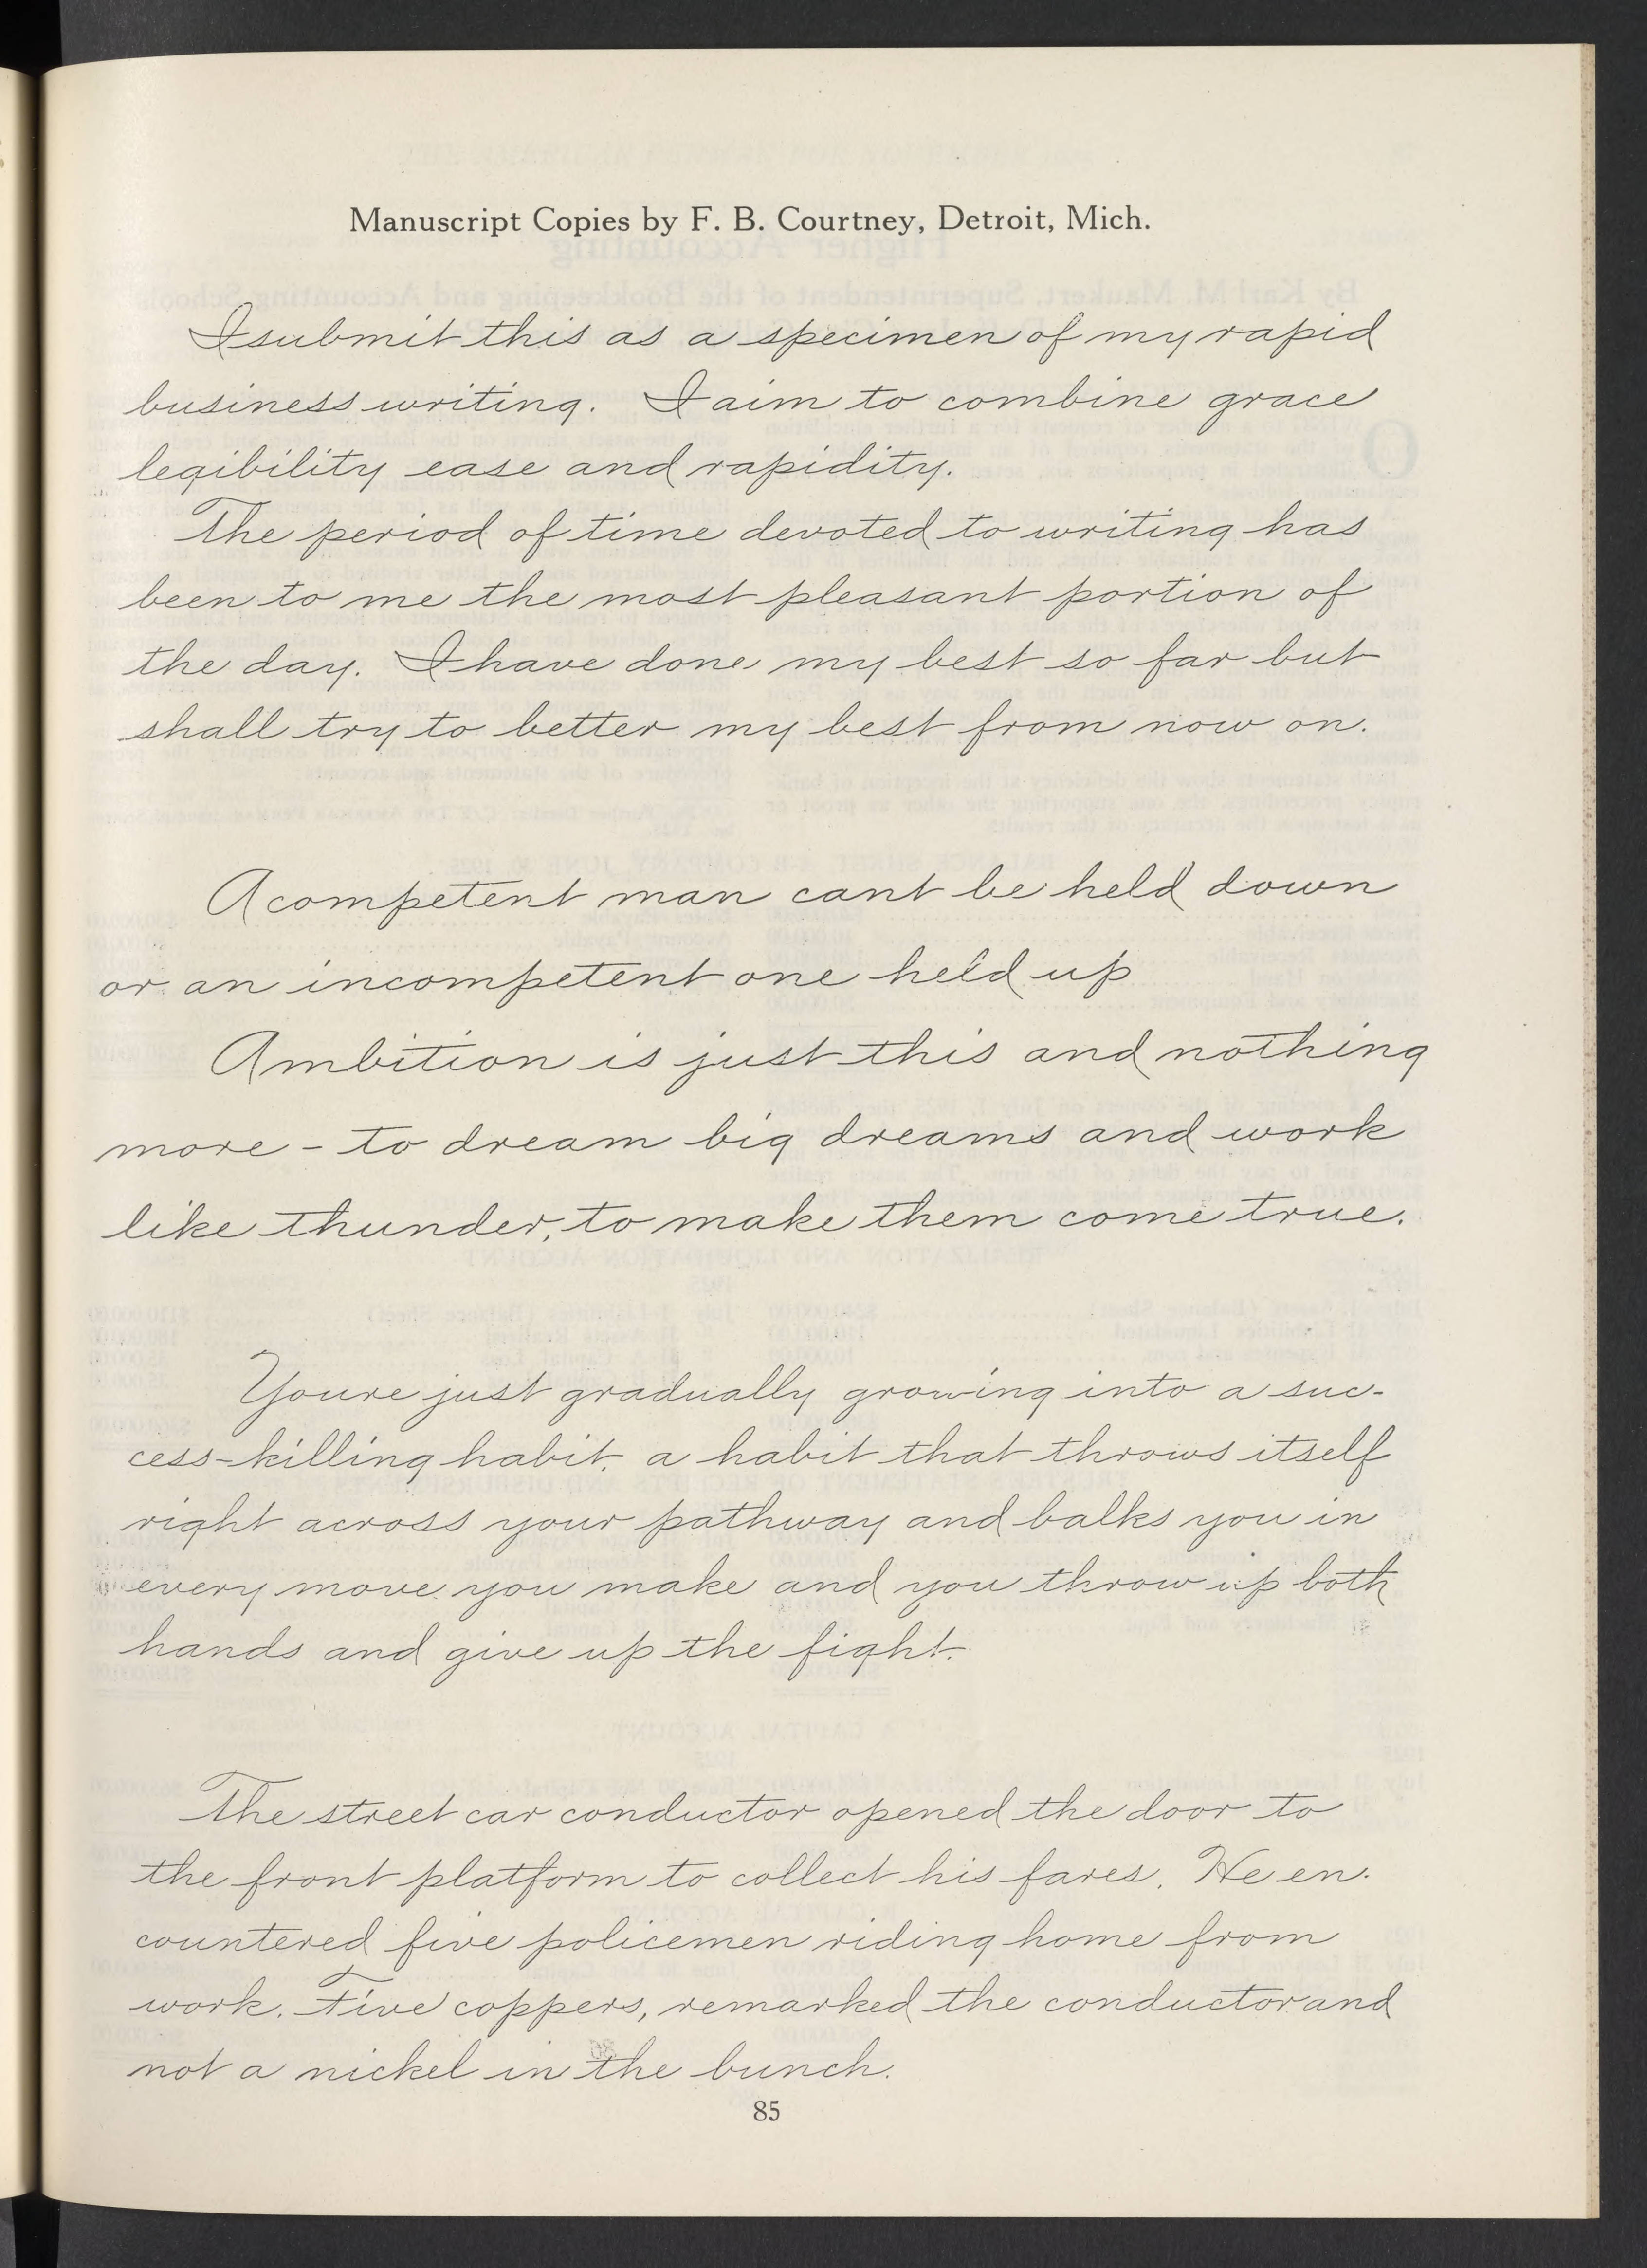 Manuscript Copies by F. B. Courtney, Detroit, Mich.
I submit this as a specimen of my rapid
business writing. I aim to combine grace
legibility ease and rapidity.
The period of time devoted to writing has
been to me the most pleasant portion of
the day. I have done my best so far but
shall try to better my best from now on.
A competent man cant be held down
or an incompetent one held up
Ambition is just this and nothing
more - to dream big dreams and work
like thunder, to make them come true.
Youre just gradually growing into a suc-
cess-killing habit, a habit that throws itself
right across your pathway and balks you in
every move you make and you throw up both
hands and give up the fight.
The street car conductor opened the door to
the front platform to collect his fares. He en-
countered five policemen riding home from
work. Five coppers, remarked the conductor and
not a nickel in the bunch.
85